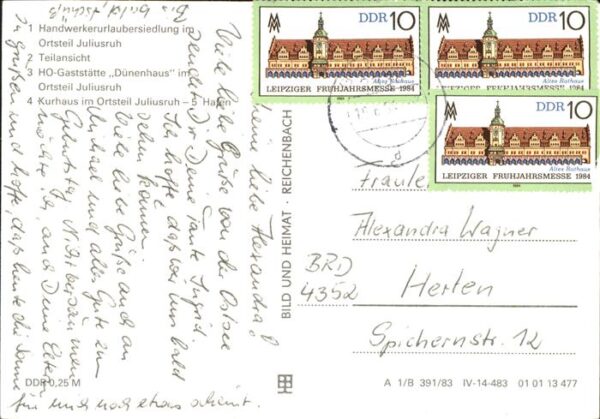 1 Handwerkerurlaubersiedlung im
Ortsteil Juliusruh
2 Teilansicht
3 HO-Gaststätte „Dünenhaus" im
Ortsteil Juliusruh
4 Kurhaus im Ortsteil Juliusruh – 5 Hafen
Meine liebe Alexandra!
Viele liebe Grüße von der Ostsee
sendet Dir Deine Tante Sigrid.
Ich hoffe, daß wir uns bald
sehen können.
Viele liebe Grüße auch an
Michael und alles Gute zum
Geburtstag. Nicht vergessen
möchte ich, auch Deine Eltern
zu grüßen und hoffe, daß heute die Sonne
für mich noch etwas scheint.
Bis bald, tschüß
DDR 0,25 M
BILD UND HEIMAT · REICHENBACH
DDR 10
Altes Rathaus
LEIPZIGER FRÜHJAHRSMESSE 1984
DDR 10
Altes Rathaus
LEIPZIGER FRÜHJAHRSMESSE 1984
DDR 10
Altes Rathaus
LEIPZIGER FRÜHJAHRSMESSE 1984
d
Fräulein
Alexandra Wagner
BRD
4352 Herten
Spichernstr. 12
A 1/B 391/83 IV-14-483 01 01 13 477